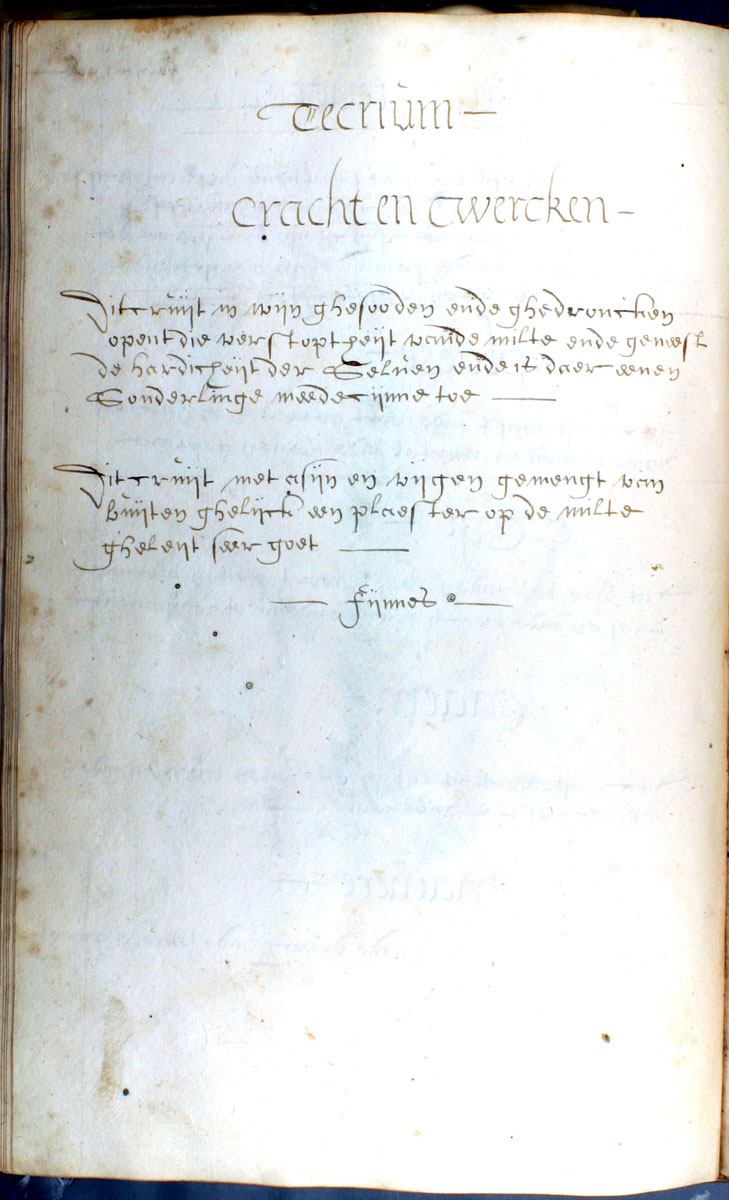 Tecrium —
Cracht en Cwercken —
Dit cruijt in wijn ghesooden ende ghedroncken
opent die verstoptheijt vande milte ende geneest
de hardicheijt der Seluen ende is daer eenen
Sonderlinge meedecijnne toe —
Dit cruijt met asijn en vijgen gemengt van
buijten ghelijck een plaester op de milte
gheleijt seer goet —
— Fijnnes —